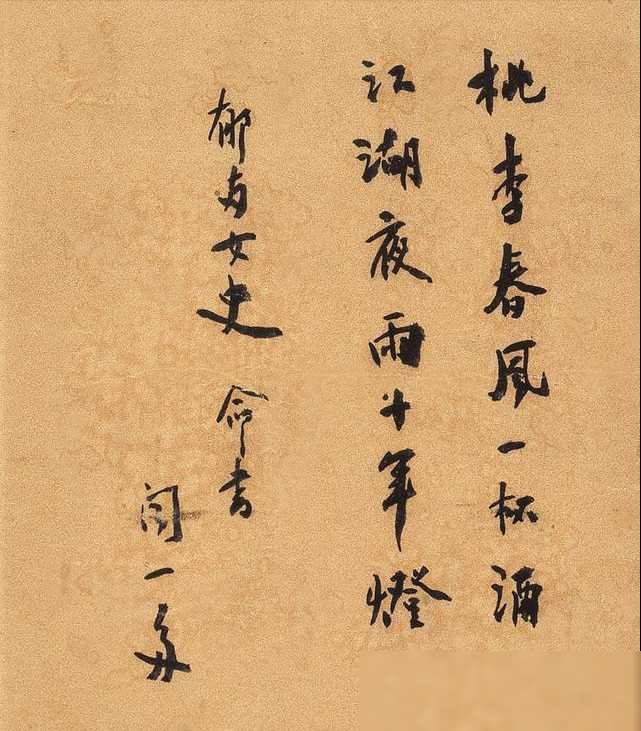 桃李春風一杯酒
江湖夜雨十年燈
郁女史 命書
聞一多